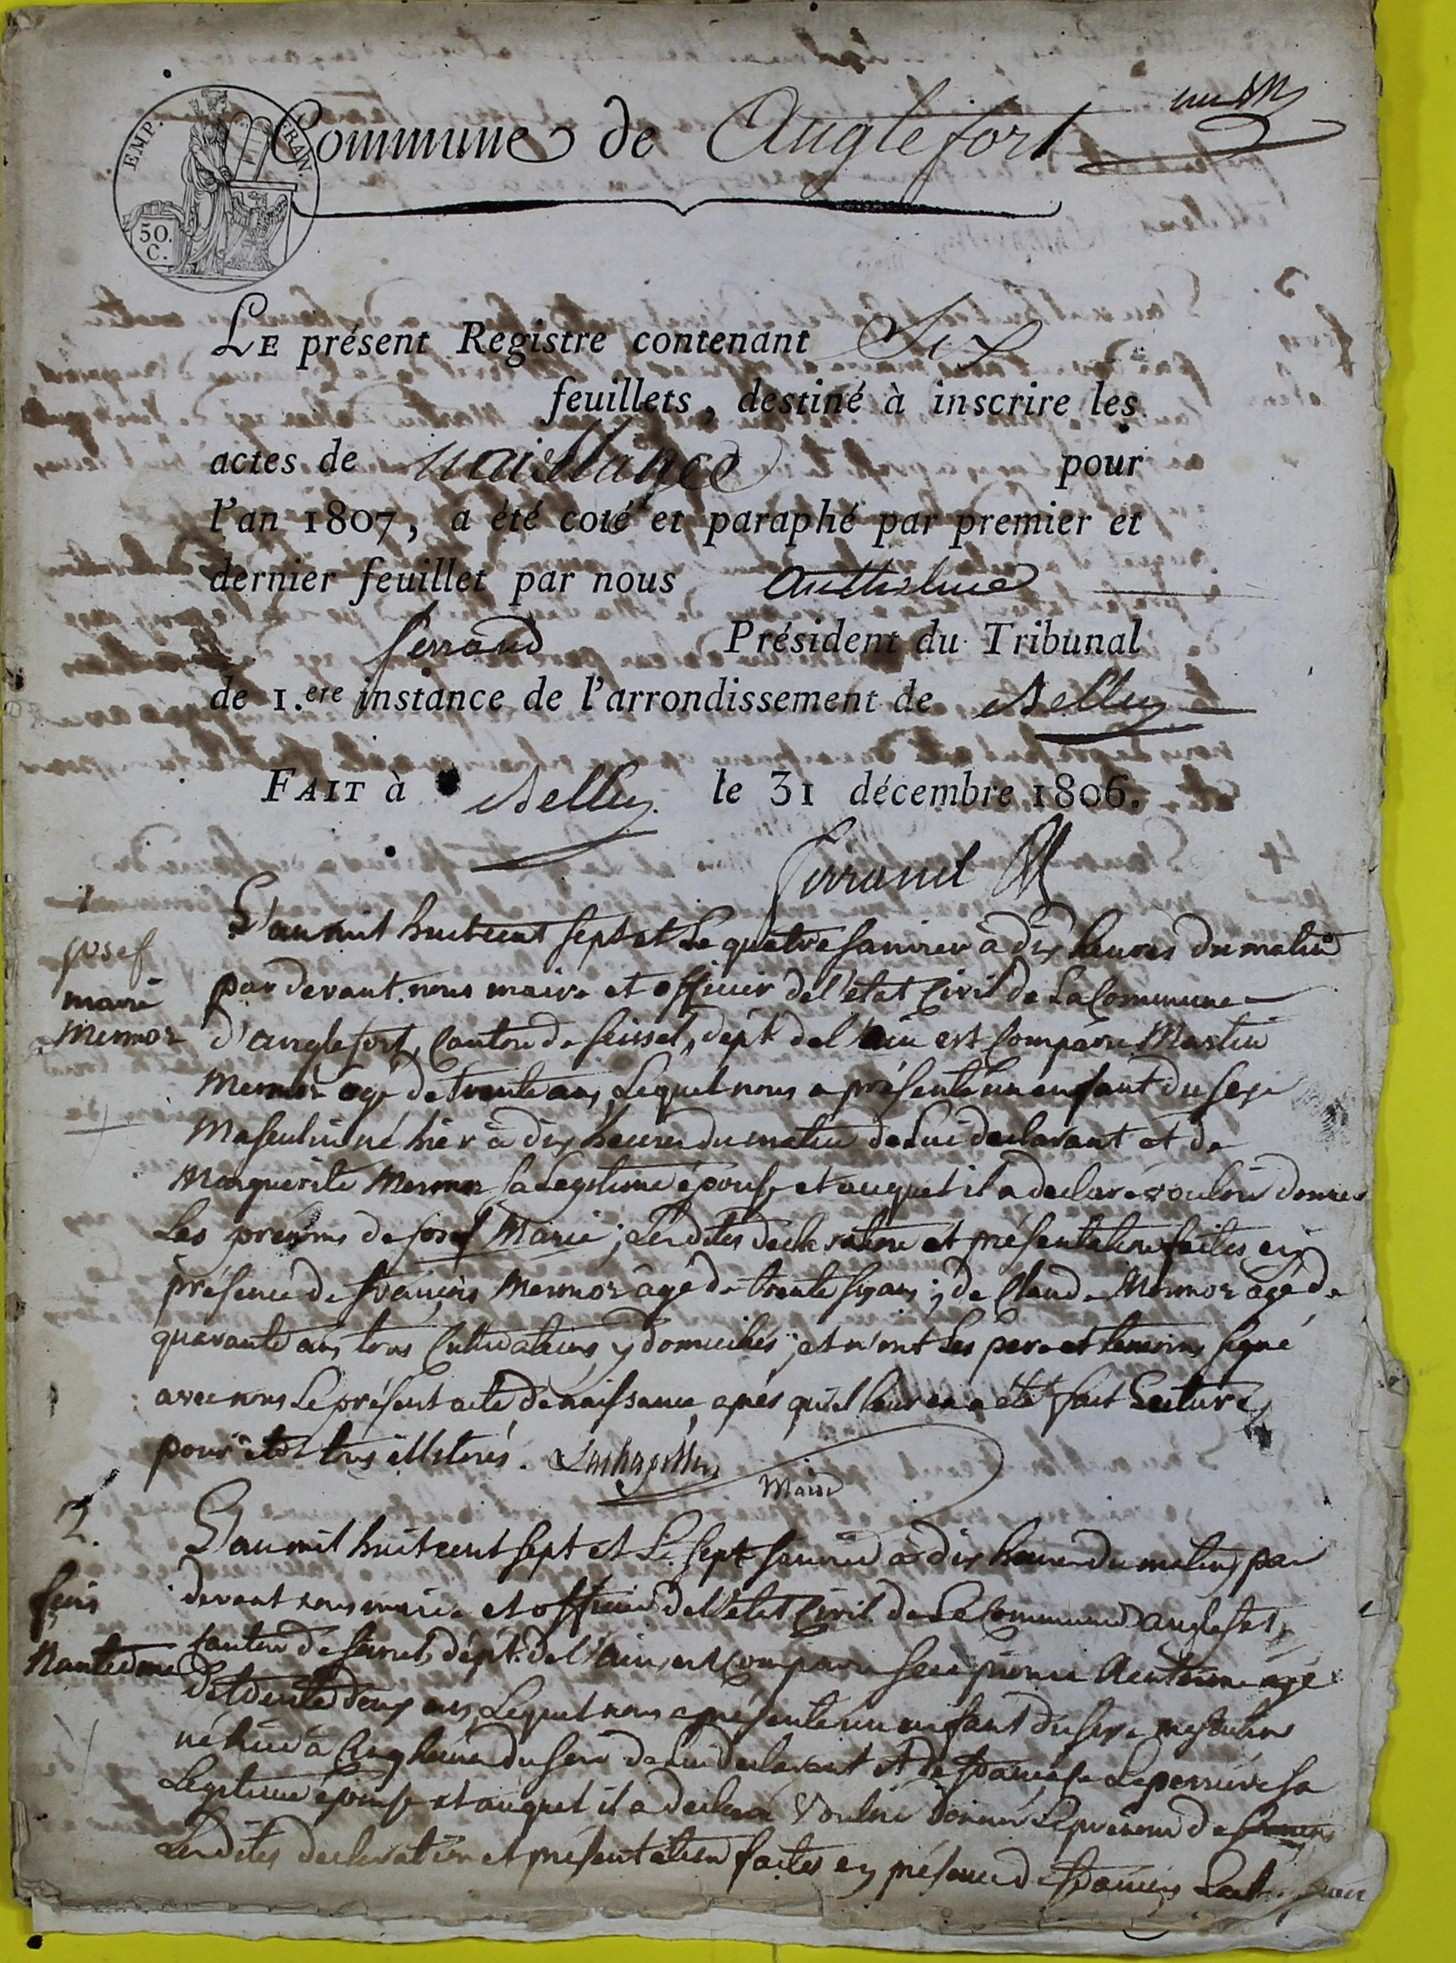 EMP. FRAN
50.
C.
Commune de Anglefort
LE présent Registre contenant Six
feuillets, destiné à inscrire les
actes de naissance pour
l'an 1807, a été coté et paraphé par premier et
dernier feuillet par nous Anthelme
ferrand Président du Tribunal
de 1.ere instance de l'arrondissement de Belley
FAIT à Belley le 31 décembre 1806.
ferrand
1
josef
marie
Mermoz
L'an mil huit cent sept et Le quatre janvier à dix heures du matin
par devant nous maire et officier de l'état Civil de La Commune
d'anglefort, Canton de seissel, dépt. de l'ain est Comparu Martin
Mermoz agé de trente ans, Lequel nous a présenté un enfant du sexe
Masculin né hier à dix heures du matin de Lui déclarant et de
Marguerite Mermoz sa Legitime épouse, et auquel il a declaré vouloir donner
Les prénoms de josef Marie; Lesdites declaration et présentation faites en
présence de françois Mermoz âgé de trente six ans; de Claude Mermoz âgé de
quarante ans tous Cultivateurs y domiciliés; et n'ont Les pere et temoins signé
avec nous Le présent acte de naissance, après qu'il leur en a été fait Lecture,
pour etre tous illiterés. Lachapelle
Maire
2.
Nantermoz
L'an mil huit cent sept et Le sept janvier à dix heures du matin, par
devant nous maire et officier de l'état Civil de La Commune d'anglefort,
Canton de seissel, dépt. de l'ain, est Comparu Antoine agé
de trente deux ans, Lequel nous a présenté un enfant du sexe masculin
né hier à Cinq heures du soir de Lui declarant et de françoise Laperrière sa
Legitime épouse, et auquel il a declaré Vouloir donner Le prénom de
Lesdites declaration et présentation faites en présence de françois